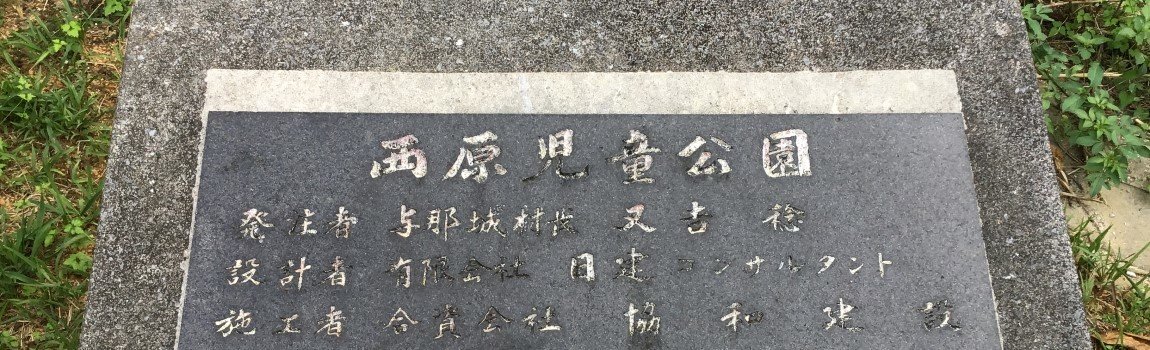 西原児童公園
発注者 与那城村長 又吉 稔
設計者 有限会社 日建コンサルタント
施工者 合資会社 協和建設